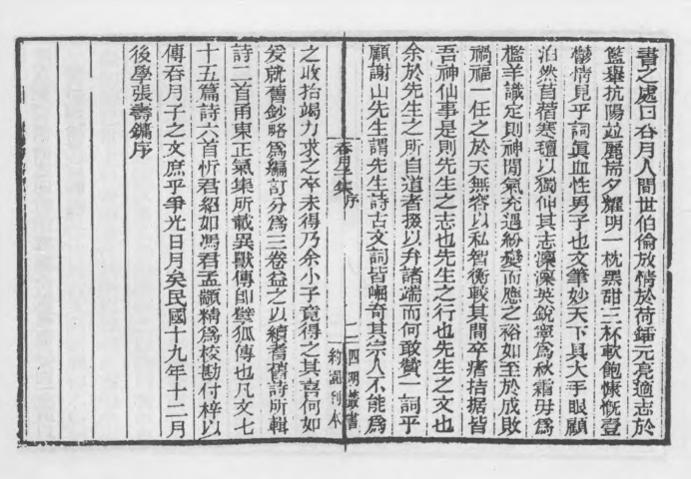 書之處曰吞月人間世伯倫放情於荷鍤元亮適志於
籃轝抗陽竝麗揣夕耀明一枕黑甜三杯軟飽慷慨壹
鬱情見乎詞眞血性男子也文筆妙天下具大手眼顧
泊然苜蓿寒氊以獨伸其志澟澟英銳寧爲秋霜毋爲
檻羊識定則神閒氣充遇紛變而應之裕如至於成敗
禍福一任之於天無容以私智衡較其間卒瘏拮据皆
吾神仙事是則先生之志也先生之行也先生之文也
余於先生之所自道者掇以弁諸端而何敢贊一詞乎
顧謝山先生謂先生詩古文詞皆崛奇其宗人不能爲
吞月子集 序
二 四明叢書
約園刊本
之收拾竭力求之卒未得乃余小子竟得之其喜何如
爰就舊鈔略爲編訂分爲三卷益之以續耆舊詩所輯
詩二首甬東正氣集所載異獸傳卽孽狐傳也凡文七
十五篇詩六首忻君紹如馮君孟顓精爲校勘付梓以
傳吞月子之文庶乎爭光日月矣民國十九年十二月
後學張壽鏞序